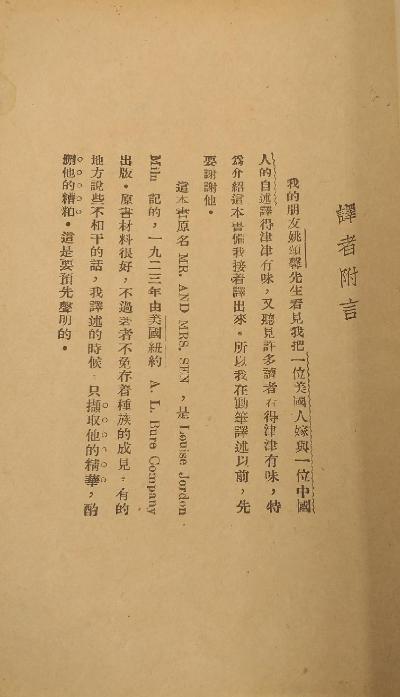 譯者附言
我的朋友姚頌馨先生看見我把一位美國人嫁與一位中國
人的自述譯得津津有味，又聽見許多讀者看得津津有味，特
爲介紹這本書備我接着譯出來。所以我在動筆譯述以前，先
要謝謝他。
這本書原名 MR. AND MRS. SEN，是 Louise Jordon
Miln 記的，一九二三年由美國紐約 A. L. Burt Company
出版。原書材料很好，不過著者不免存着種族的成見，有的
地方說些不相干的話，我譯述的時候，只擷取他的精華，酌
刪他的糟粕。這是要預先聲明的。